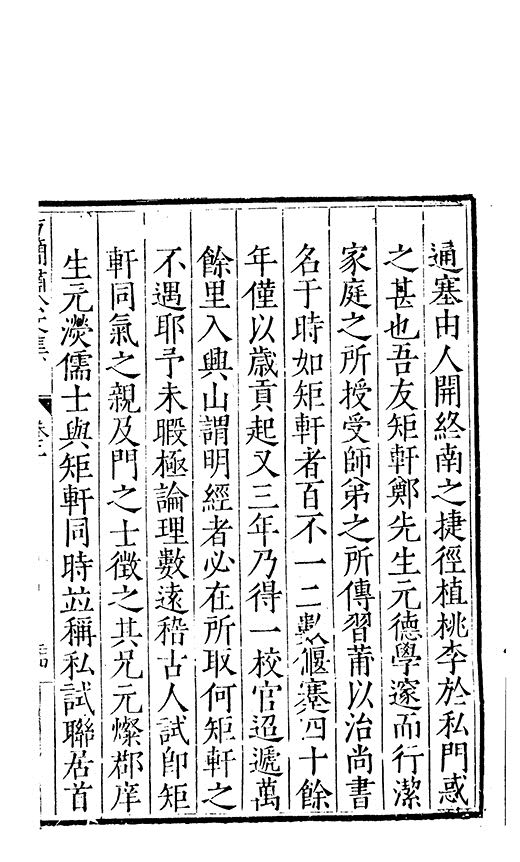 通塞由人開終南之捷徑植桃李於私門惑
之甚也吾友矩軒鄭先生元德學邃而行潔
家庭之所授受師弟之所傳習莆以治尚書
名于時如矩軒者百不一二數偃蹇四十餘
年僅以歲貢起又三年乃得一校官迢遞萬
餘里入興山謂明經者必在所取何矩軒之
不遇耶予未暇極論理數遠稽古人試卽矩
軒同氣之親及門之士徵之其兄元燦郡庠
生元濙儒士與矩軒同時並稱私試聯居首